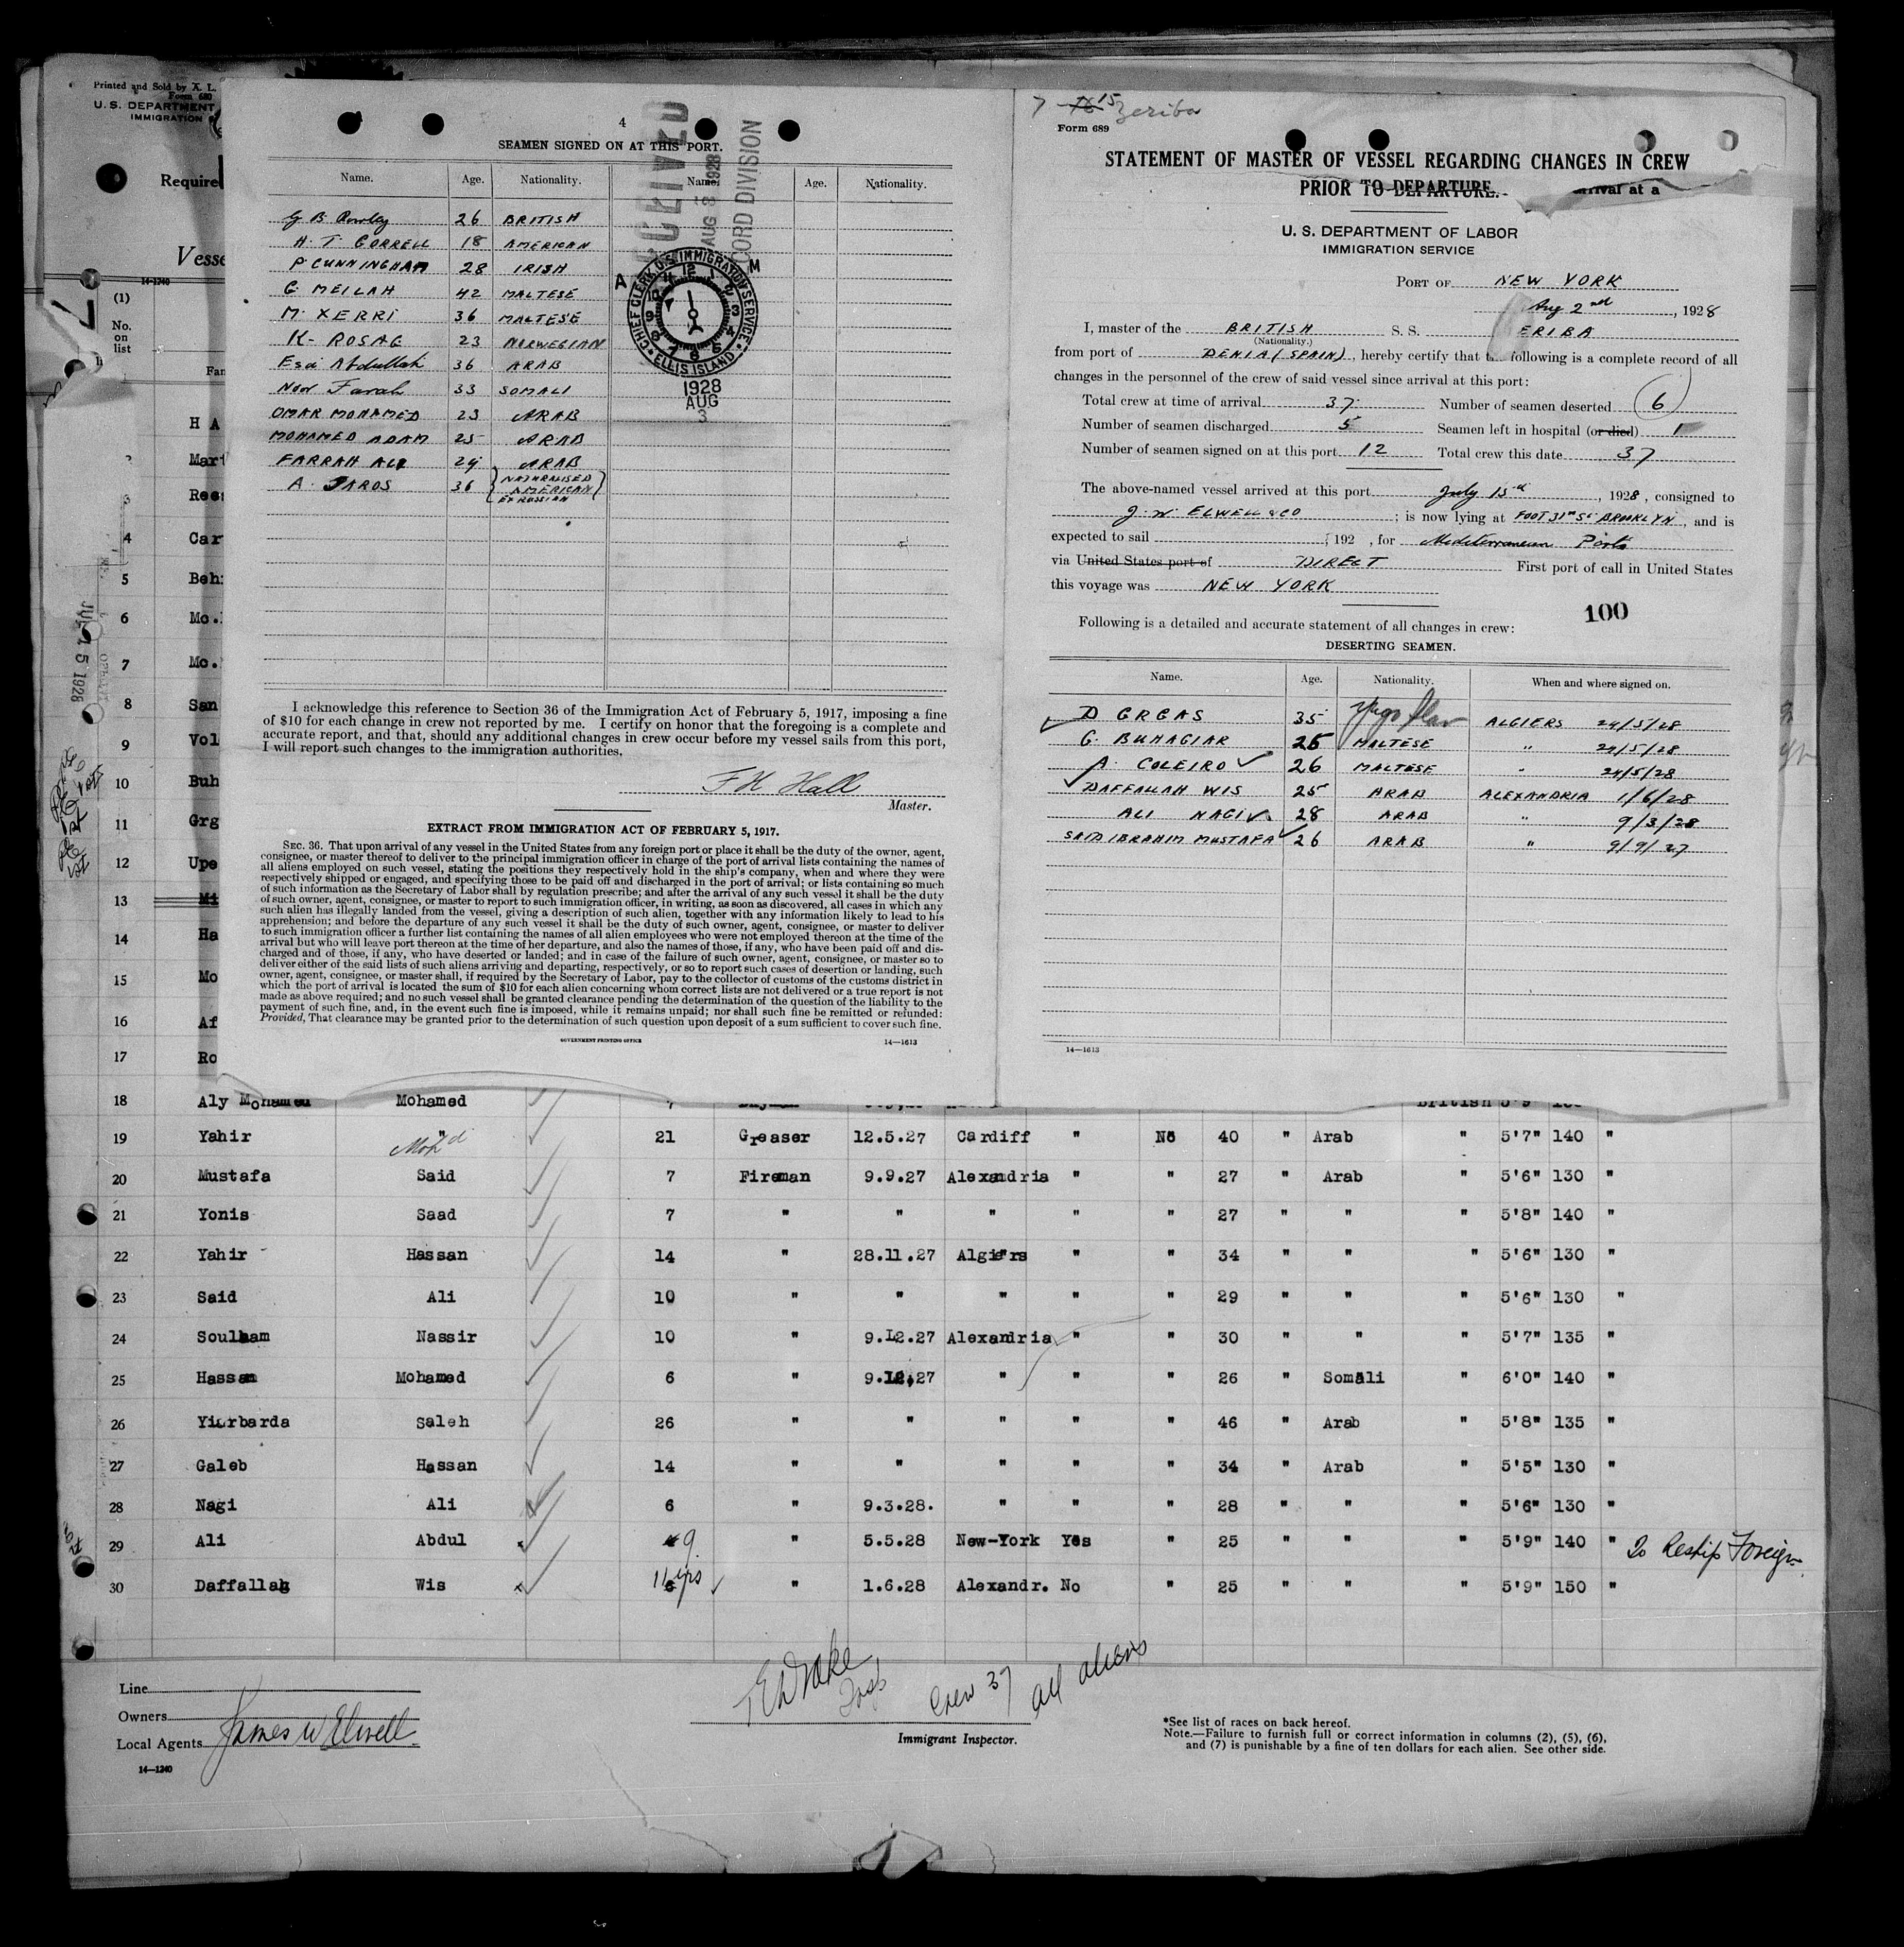 Printed and Sold by X. L.
Form 680
U. S. DEPARTMENT
IMMIGRATION
Require
Vesse
14-1240
(1)
No.
on
list
Fam
4
SEAMEN SIGNED ON AT THIS PORT.
Name. Age. Nationality. Name. Age. Nationality.
G B Rowley 26 BRITISH
H. T. CORRELL 18 AMERICAN
P CUNNINGHAM 28 IRISH
C. MEILAH 42 MALTESE
M. XERRI 36 MALTESE
K. ROSAG 23 NORWEGIAN
Esa Abdullah 36 ARAB
Noor Farah 33 SOMALI
OMAR MOHAMED 23 ARAB
MOHAMED ADAM 25 ARAB
FARRAH ALI 24 ARAB
A. JAROS 36 NATURALISED
AMERICAN
EX RUSSIAN
RECEIVED
AUG 3 1928
CORD DIVISION
A M
CHIEF CLERK U.S. IMMIGRATION SERVICE
ELLIS ISLAND
1928
AUG
3
I acknowledge this reference to Section 36 of the Immigration Act of February 5, 1917, imposing a fine
of $10 for each change in crew not reported by me. I certify on honor that the foregoing is a complete and
accurate report, and that, should any additional changes in crew occur before my vessel sails from this port,
I will report such changes to the immigration authorities.
F H Hall
Master.
EXTRACT FROM IMMIGRATION ACT OF FEBRUARY 5, 1917.
SEC. 36. That upon arrival of any vessel in the United States from any foreign port or place it shall be the duty of the owner, agent,
consignee, or master thereof to deliver to the principal immigration officer in charge of the port of arrival lists containing the names of
all aliens employed on such vessel, stating the positions they respectively hold in the ship's company, when and where they were
respectively shipped or engaged, and specifying those to be paid off and discharged in the port of arrival; or lists containing so much
of such information as the Secretary of Labor shall by regulation prescribe; and after the arrival of any such vessel it shall be the duty
of such owner, agent, consignee, or master to report to such immigration officer, in writing, as soon as discovered, all cases in which any
such alien has illegally landed from the vessel, giving a description of such alien, together with any information likely to lead to his
apprehension; and before the departure of any such vessel it shall be the duty of such owner, agent, consignee, or master to deliver
to such immigration officer a further list containing the names of all alien employees who were not employed thereon at the time of the
arrival but who will leave port thereon at the time of her departure, and also the names of those, if any, who have been paid off and dis-
charged and of those, if any, who have deserted or landed; and in case of the failure of such owner, agent, consignee, or master so to
deliver either of the said lists of such aliens arriving and departing, respectively, or so to report such cases of desertion or landing, such
owner, agent, consignee, or master shall, if required by the Secretary of Labor, pay to the collector of customs of the customs district in
which the port of arrival is located the sum of $10 for each alien concerning whom correct lists are not delivered or a true report is not
made as above required; and no such vessel shall be granted clearance pending the determination of the question of the liability to the
payment of such fine, and, in the event such fine is imposed, while it remains unpaid; nor shall such fine be remitted or refunded:
Provided, That clearance may be granted prior to the determination of such question upon deposit of a sum sufficient to cover such fine.
GOVERNMENT PRINTING OFFICE 14—1613
7 16 15 Zeriba
Form 689
STATEMENT OF MASTER OF VESSEL REGARDING CHANGES IN CREW
PRIOR TO DEPARTURE. arrival at a
U. S. DEPARTMENT OF LABOR
IMMIGRATION SERVICE
PORT OF NEW YORK
Aug 2nd, 1928
I, master of the BRITISH S. S. ERIBA
(Nationality.)
from port of DENIA (SPAIN), hereby certify that the following is a complete record of all
changes in the personnel of the crew of said vessel since arrival at this port:
Total crew at time of arrival 37 Number of seamen deserted 6
Number of seamen discharged 5 Seamen left in hospital (or died) 1
Number of seamen signed on at this port 12 Total crew this date 37
The above-named vessel arrived at this port July 15th, 1928, consigned to
J. W. ELWELL & CO; is now lying at FOOT 31st St BROOKLYN, and is
expected to sail , 192 , for Mediterranean Ports
via United States port of DIRECT First port of call in United States
this voyage was NEW YORK
100
Following is a detailed and accurate statement of all changes in crew:
DESERTING SEAMEN.
Name. Age. Nationality. When and where signed on.
D GRGAS 35 Yugo Slav ALGIERS 24/5/28
G. BUHAGIAR 25 MALTESE " 24/5/28
A. COLEIRO 26 MALTESE " 24/5/28
DAFFALLAH WIS 25 ARAB ALEXANDRIA 1/6/28
ALI NAGI 28 ARAB " 9/3/28
SAID IBRAHIM MUSTAFA 26 ARAB " 9/9/27
14—1613
JUL 15 1928
H A
Mart
3 Rees
4 Car
5 Beh
6 Mc.
7 Mc.
8 San
9 Vol
10 Buh
11 Grg
12 Upe
13 Mi
14 Ha
15 Mo
16 Af
17 Ro
18 Aly Mohamed Mohamed 7 British 5'9
19 Yahir " Moh'd 21 Greaser 12.5.27 Cardiff " No 40 " Arab " 5'7" 140 "
20 Mustafa Said 7 Fireman 9.9.27 Alexandria " " 27 " Arab " 5'6" 130 "
21 Yonis Saad 7 " " " " " 27 " " " 5'8" 140 "
22 Yahir Hassan 14 " 28.11.27 Algiers " " 34 " " " 5'6" 130 "
23 Said Ali 10 " " " " " 29 " " " 5'6" 130 "
24 Soulham Nassir 10 " 9.12.27 Alexandria " " 30 " " " 5'7" 135 "
25 Hassan Mohamed 6 " 9.12.27 " " " 26 " Somali " 6'0" 140 "
26 Yiarbarda Saleh 26 " " " " " 46 " Arab " 5'8" 135 "
27 Galeb Hassan 14 " " " " " 34 " Arab " 5'5" 130 "
28 Nagi Ali 6 " 9.3.28. " " " 28 " " " 5'6" 130 "
29 Ali Abdul 9 " 5.5.28 New-York Yes " 25 " " " 5'9" 140 " To Reship Foreign
30 Daffallah Wis 11 yrs " 1.6.28 Alexandr. No " 25 " " " 5'9" 150 "
Line
Owners
Local Agents James W Elwell
14—1240
Crew 37 all aliens
Immigrant Inspector.
*See list of races on back hereof.
Note.—Failure to furnish full or correct information in columns (2), (5), (6),
and (7) is punishable by a fine of ten dollars for each alien. See other side.